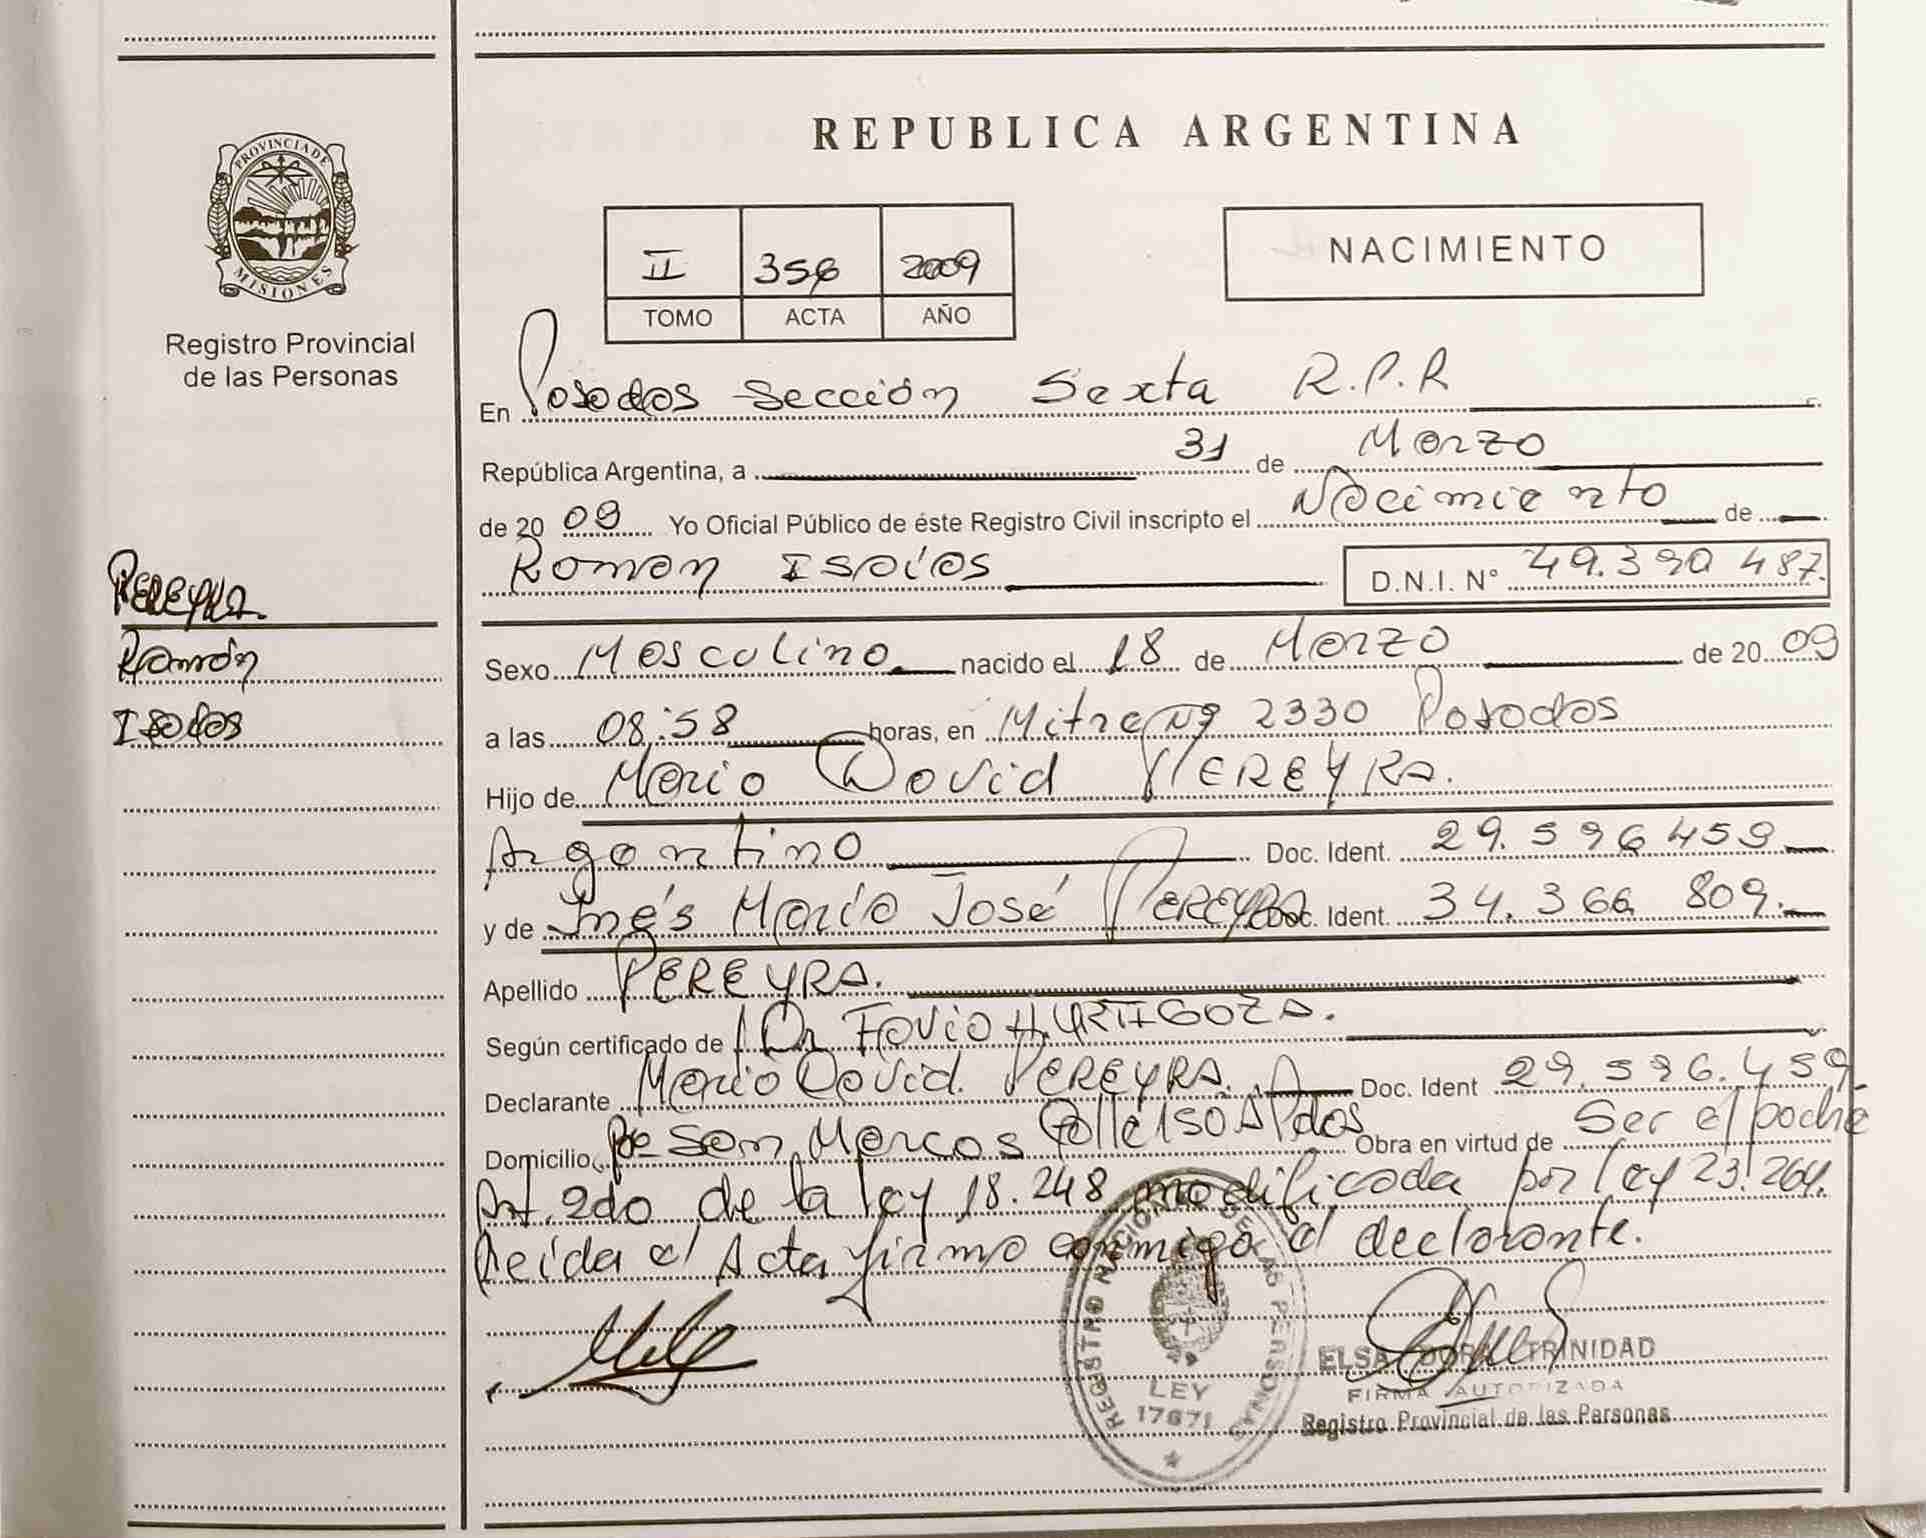 PROVINCIA DE
MISIONES
Registro Provincial
de las Personas
PEREYRA
Ramón
Isaías
REPUBLICA ARGENTINA
II 356 2009
TOMO ACTA AÑO
NACIMIENTO
En Posadas Sección Sexta R.P.R
República Argentina, a 31 de Marzo
de 2009 Yo Oficial Público de éste Registro Civil inscripto el Nacimiento de
Ramon Isaías D.N.I. N° 49.390 487.
Sexo Masculino nacido el 18 de Marzo de 2009
a las 08:58 horas, en Mitre Nº 2330 Posadas
Hijo de Mario David PEREYRA.
Argentino Doc. Ident. 29.596459
y de Inés María José PEREYRA Doc. Ident. 34.366 809.
Apellido PEREYRA.
Según certificado de Dr Favio H. URTIGOZA.
Declarante Mario David PEREYRA. Doc. Ident 29.596.459
Domicilio San Marcos Calle 150 A Pdas Obra en virtud de Ser el padre
Art. 2do de la ley 18.248 modificada por ley 23.264.
Leída el Acta firma conmigo el declarante.
REGISTRO NACIONAL DE LAS PERSONAS
LEY
17671
ELSA DORA TRINIDAD
FIRMA AUTORIZADA
Registro Provincial de las Personas